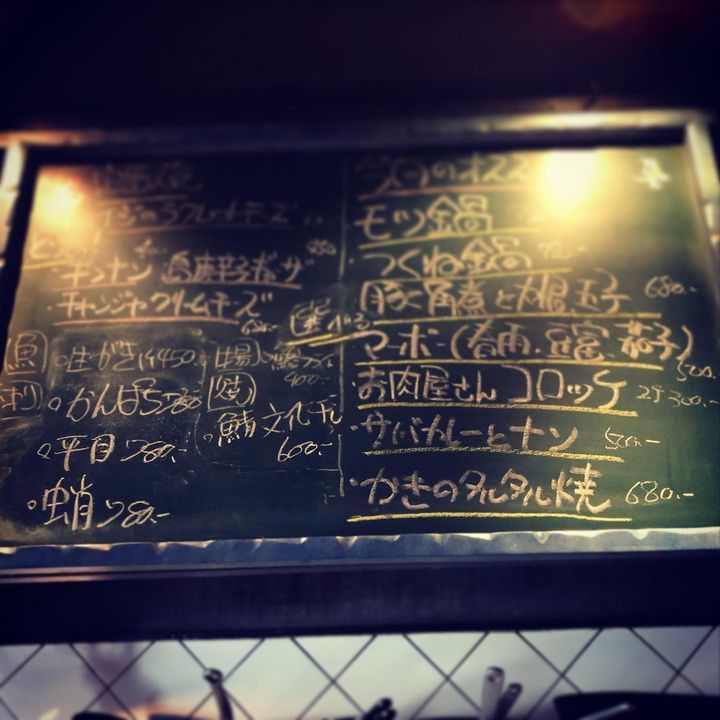 チーズ
ギンナン
チャンジャクリームチーズ
魚
刺
生がき1ヶ450.-
かんぱち780
平目780.-
蛸780.-
揚
フライ
400.-
焼
鯖文化干し
600.-
今日のオススメ
モツ鍋
つくね鍋
豚角煮と大根、玉子 680.-
マーボー(春雨、豆腐、茄子)
500.-
お肉屋さんコロッケ 2ケ300.-
サバカレーとナン 500.-
かきのタルタル焼 680.-